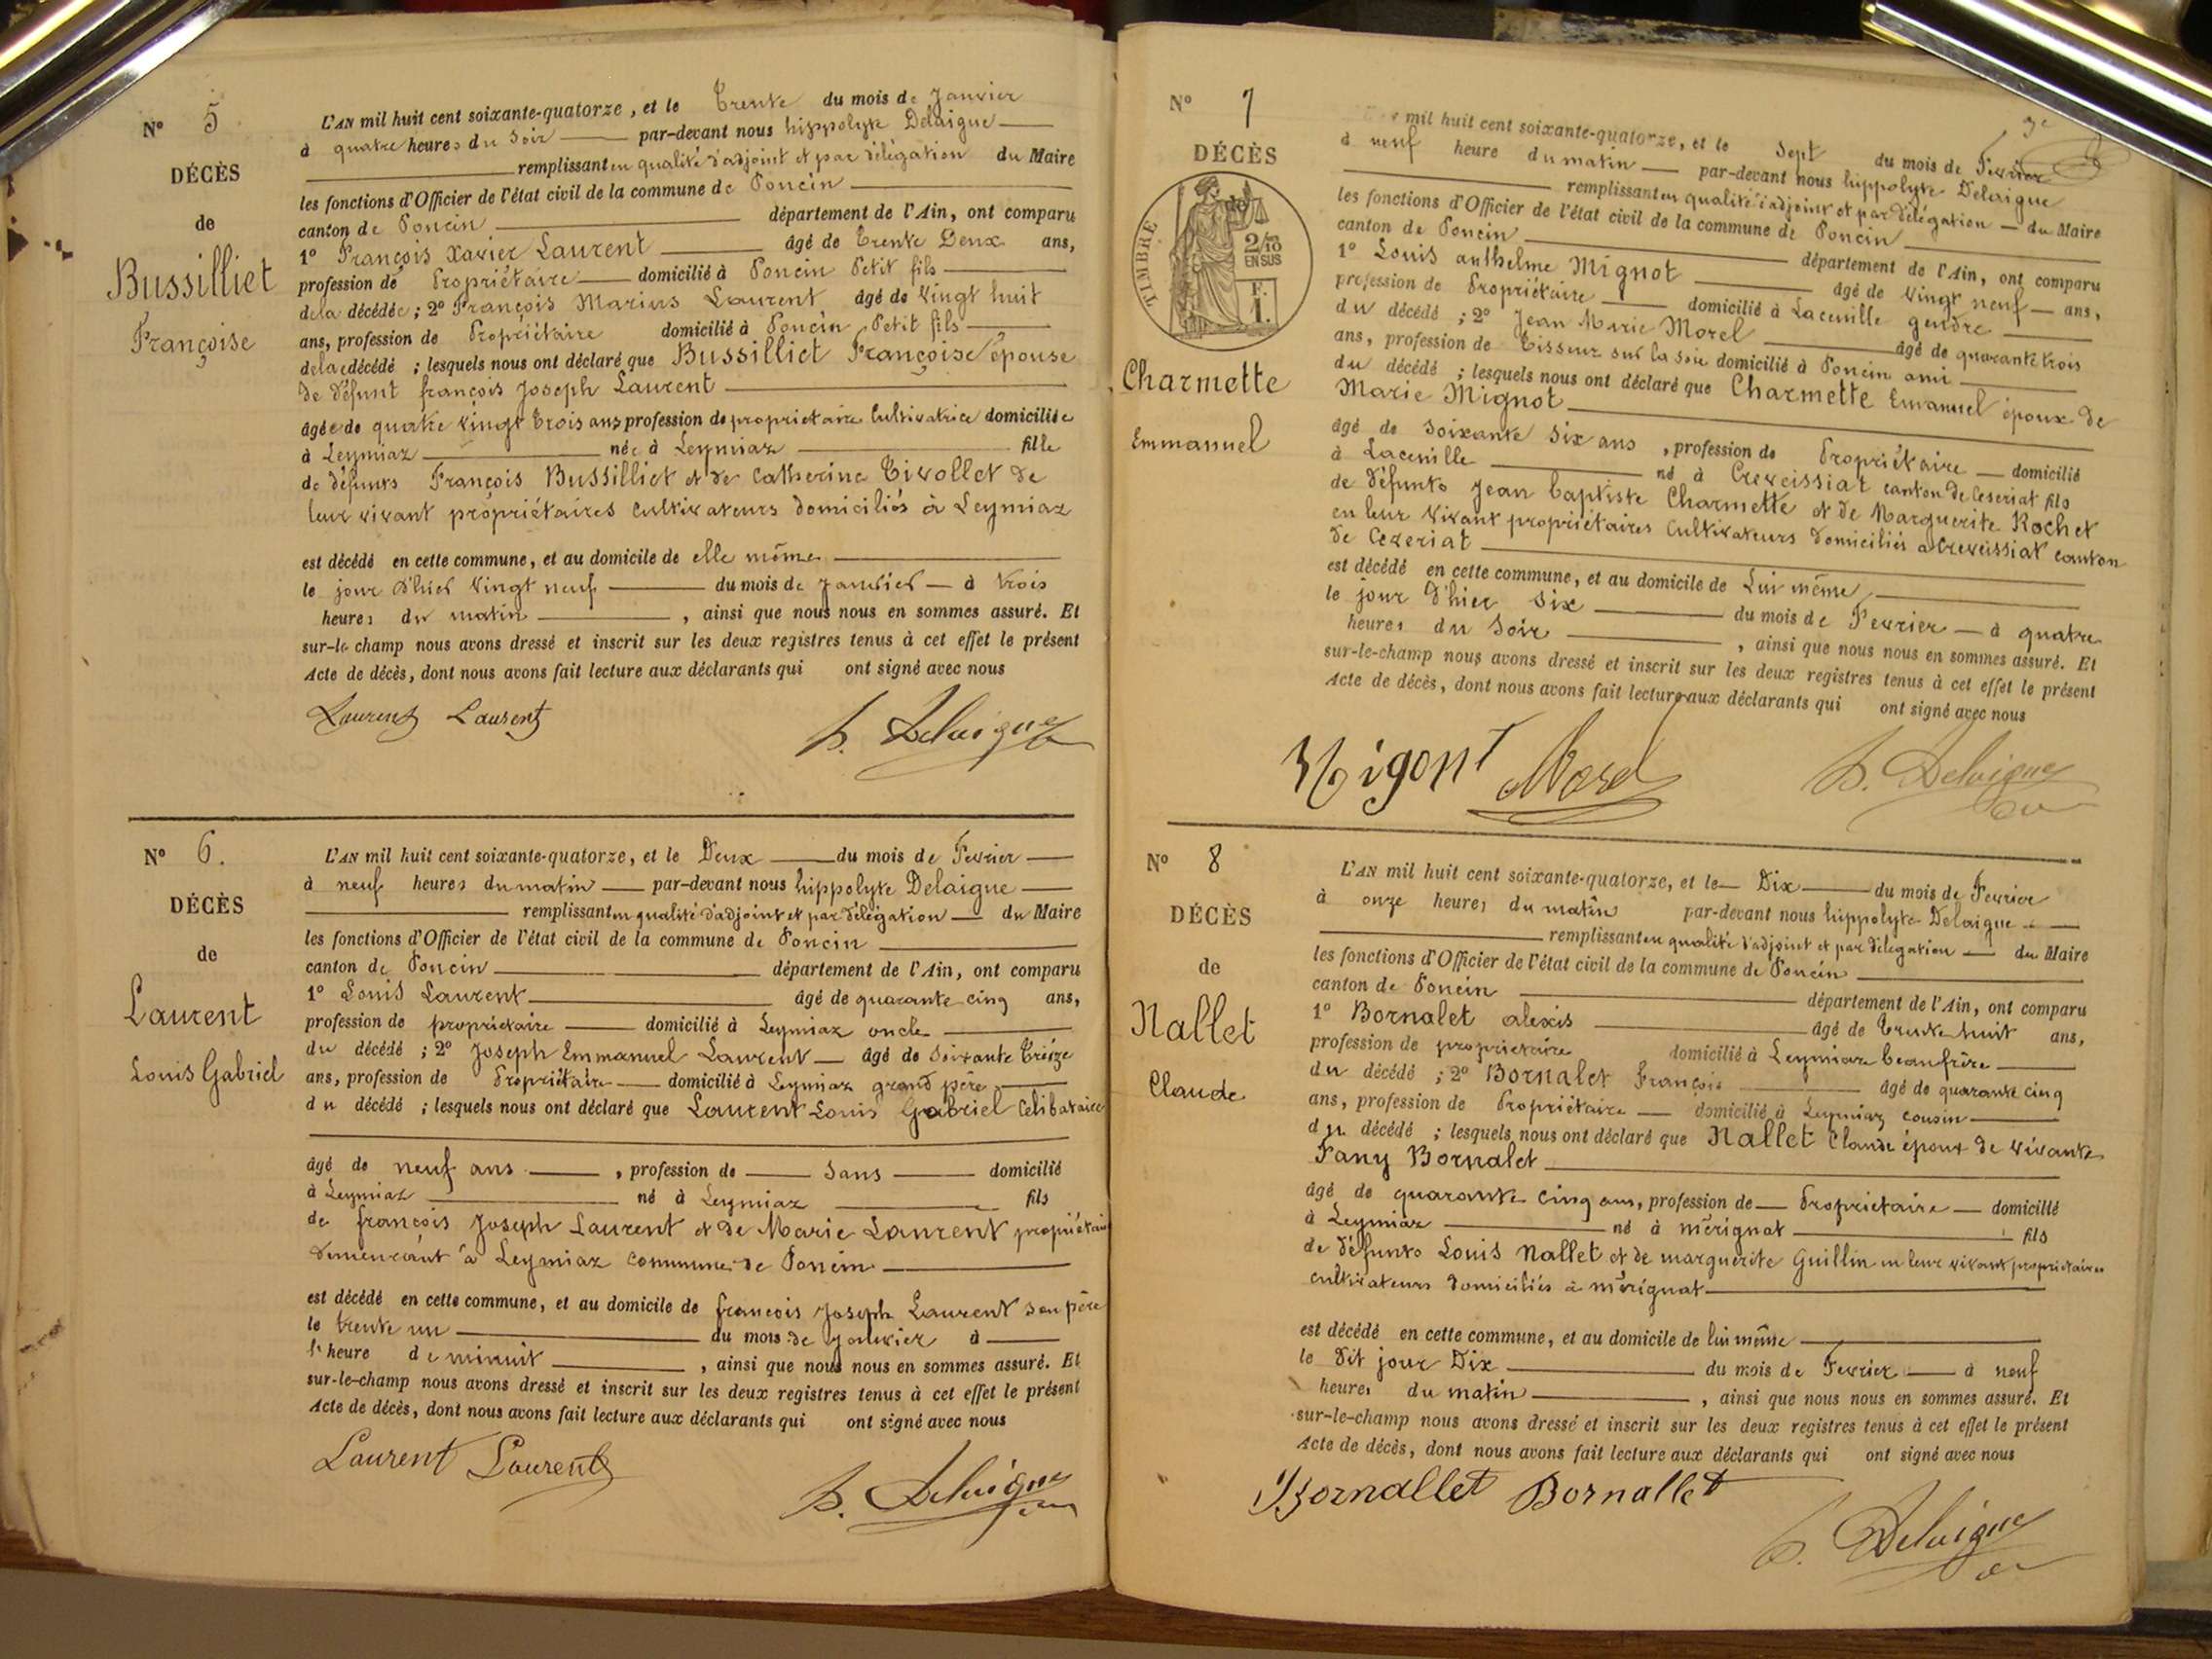 N° 5
DÉCÈS
de
Bussilliet
Françoise
L'AN mil huit cent soixante-quatorze, et le Trente du mois de Janvier
à quatre heures du Soir par-devant nous hippolyte Delaigue
remplissant en qualité d'adjoint et par délégation du Maire
les fonctions d'Officier de l'état civil de la commune de Poncin
canton de Poncin département de l'Ain, ont comparu
1° François Xavier Laurent âgé de Trente Deux ans,
profession de Propriétaire domicilié à Poncin Petit fils
de la décédée ; 2° François Marius Laurent âgé de Vingt huit
ans, profession de Propriétaire domicilié à Poncin Petit fils
de la décédé ; lesquels nous ont déclaré que Bussilliet Françoise épouse
de défunt françois Joseph Laurent
âgée de quatre Vingt Trois ans profession de propriétaire Cultivatrice domiciliée
à Leymiaz née à Leymiaz fille
de défunts François Bussilliet et de Catherine Tivollet de
leur vivant propriétaires Cultivateurs domiciliés à Leymiaz
est décédé en cette commune, et au domicile de elle même
le jour d'hier Vingt neuf du mois de Janvier à Trois
heures du matin , ainsi que nous nous en sommes assuré. Et
sur-le-champ nous avons dressé et inscrit sur les deux registres tenus à cet effet le présent
Acte de décès, dont nous avons fait lecture aux déclarants qui ont signé avec nous
Laurent Laurent h. Delaigue
N° 6.
DÉCÈS
de
Laurent
Louis Gabriel
L'AN mil huit cent soixante-quatorze, et le Deux du mois de Fevrier
à neuf heures du matin par-devant nous hippolyte Delaigue
remplissant en qualité d'adjoint et par délégation du Maire
les fonctions d'Officier de l'état civil de la commune de Poncin
canton de Poncin département de l'Ain, ont comparu
1° Louis Laurent âgé de quarante cinq ans,
profession de propriétaire domicilié à Leymiaz oncle
du décédé ; 2° Joseph Emmanuel Laurent âgé de Soixante Treize
ans, profession de Propriétaire domicilié à Leymiaz grand père
du décédé ; lesquels nous ont déclaré que Laurent Louis Gabriel Celibataire
âgé de neuf ans , profession de Sans domicilié
à Leymiaz né à Leymiaz fils
de françois Joseph Laurent et de Marie Laurent propriétai
demeurant à Leymiaz commune de Poncin
est décédé en cette commune, et au domicile de francois Joseph Laurent son père
le trente un du mois de Janvier à
l'heure de minuit , ainsi que nous nous en sommes assuré. Et
sur-le-champ nous avons dressé et inscrit sur les deux registres tenus à cet effet le présent
Acte de décès, dont nous avons fait lecture aux déclarants qui ont signé avec nous
Laurent Laurent h. Delaigue
N° 7
DÉCÈS
de
TIMBRE
2/10
EN SUS
F.
1.
Charmette
Emmanuel
mil huit cent soixante-quatorze, et le Sept du mois de Fevrier
à neuf heure du matin par-devant nous hippolyte Delaigue
remplissant en qualité d'adjoint et par délégation du Maire
les fonctions d'Officier de l'état civil de la commune de Poncin
canton de Poncin département de l'Ain, ont comparu
1° Louis anthelme Mignot âgé de Vingt neuf ans,
profession de Propriétaire domicilié à Lacenille gendre
du décédé ; 2° Jean Marie Morel âgé de quarante trois
ans, profession de Tisseur sur la Soie domicilié à Poncin ami
du décédé ; lesquels nous ont déclaré que Charmette Emanuel époux de
Marie Mignot
âgé de Soixante Six ans , profession de Propriétaire domicilié
à Lacenille né à Creveissiat canton de Ceseriat fils
de défunts Jean Baptiste Charmette et de Marguerite Rochet
en leur Vivant propriétaires Cultivateurs domiciliés a Creveissiat canton
de Cezeriat
est décédé en cette commune, et au domicile de Lui même
le jour d'hier Six du mois de Fevrier à quatre
heures du Soir , ainsi que nous nous en sommes assuré. Et
sur-le-champ nous avons dressé et inscrit sur les deux registres tenus à cet effet le présent
Acte de décès, dont nous avons fait lecture aux déclarants qui ont signé avec nous
Migont Morel h. Delaigue
N° 8
DÉCÈS
de
Nallet
Claude
L'AN mil huit cent soixante-quatorze, et le Dix du mois de Fevrier
à onze heures du matin par-devant nous hippolyte Delaigue
remplissant en qualité d'adjoint et par délégation du Maire
les fonctions d'Officier de l'état civil de la commune de Poncin
canton de Poncin département de l'Ain, ont comparu
1° Bornalet alexis âgé de Trente huit ans,
profession de propriétaire domicilié à Leymiaz beaufrère
du décédé ; 2° Bornalet François âgé de quarante cinq
ans, profession de Propriétaire domicilié à Leymiaz cousin
du décédé ; lesquels nous ont déclaré que Nallet Claude époux de vivante
Fany Bornalet
âgé de quarante cinq ans, profession de Propriétaire domicilié
à Leymiaz né à mérignat fils
de défunts Louis Nallet et de marguerite Guillin en leur vivant propriétaires
cultivateurs domiciliés à mérignat
est décédé en cette commune, et au domicile de lui même
le dit jour Dix du mois de Fevrier à neuf
heures du matin , ainsi que nous nous en sommes assuré. Et
sur-le-champ nous avons dressé et inscrit sur les deux registres tenus à cet effet le présent
Acte de décès, dont nous avons fait lecture aux déclarants qui ont signé avec nous
Bornallet Bornallet h. Delaigue